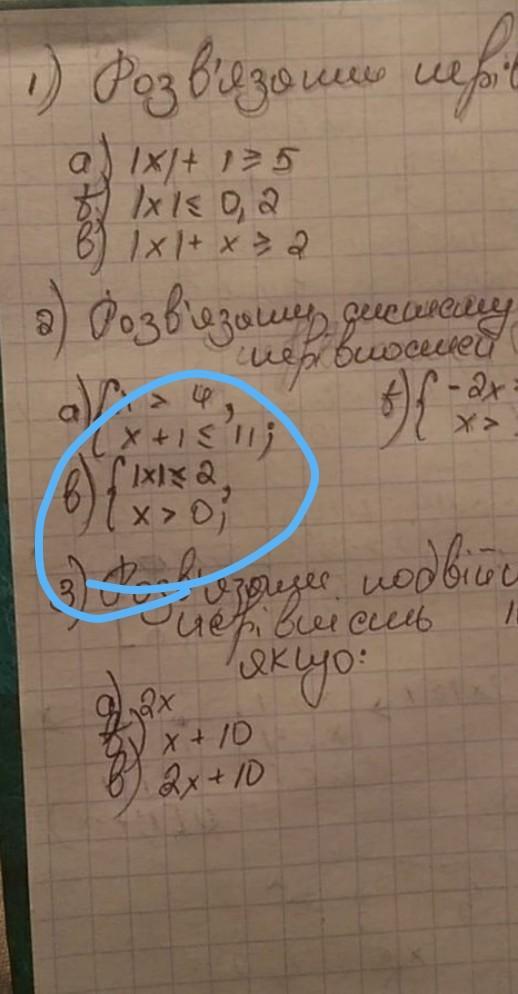 1) Розв'язати нерів
а) |x| + 1 ≥ 5
б) |x| ≤ 0,2
в) |x| + x ≥ 2
2) Розв'язати систему
нерівностей
а) { > 4,
x + 1 ≤ 11;
б) { -2x
x >
в) { |x| ≤ 2,
x > 0;
3) Розв'язати подвій
нерівність
якщо:
а) 2x
б) x + 10
в) 2x + 10